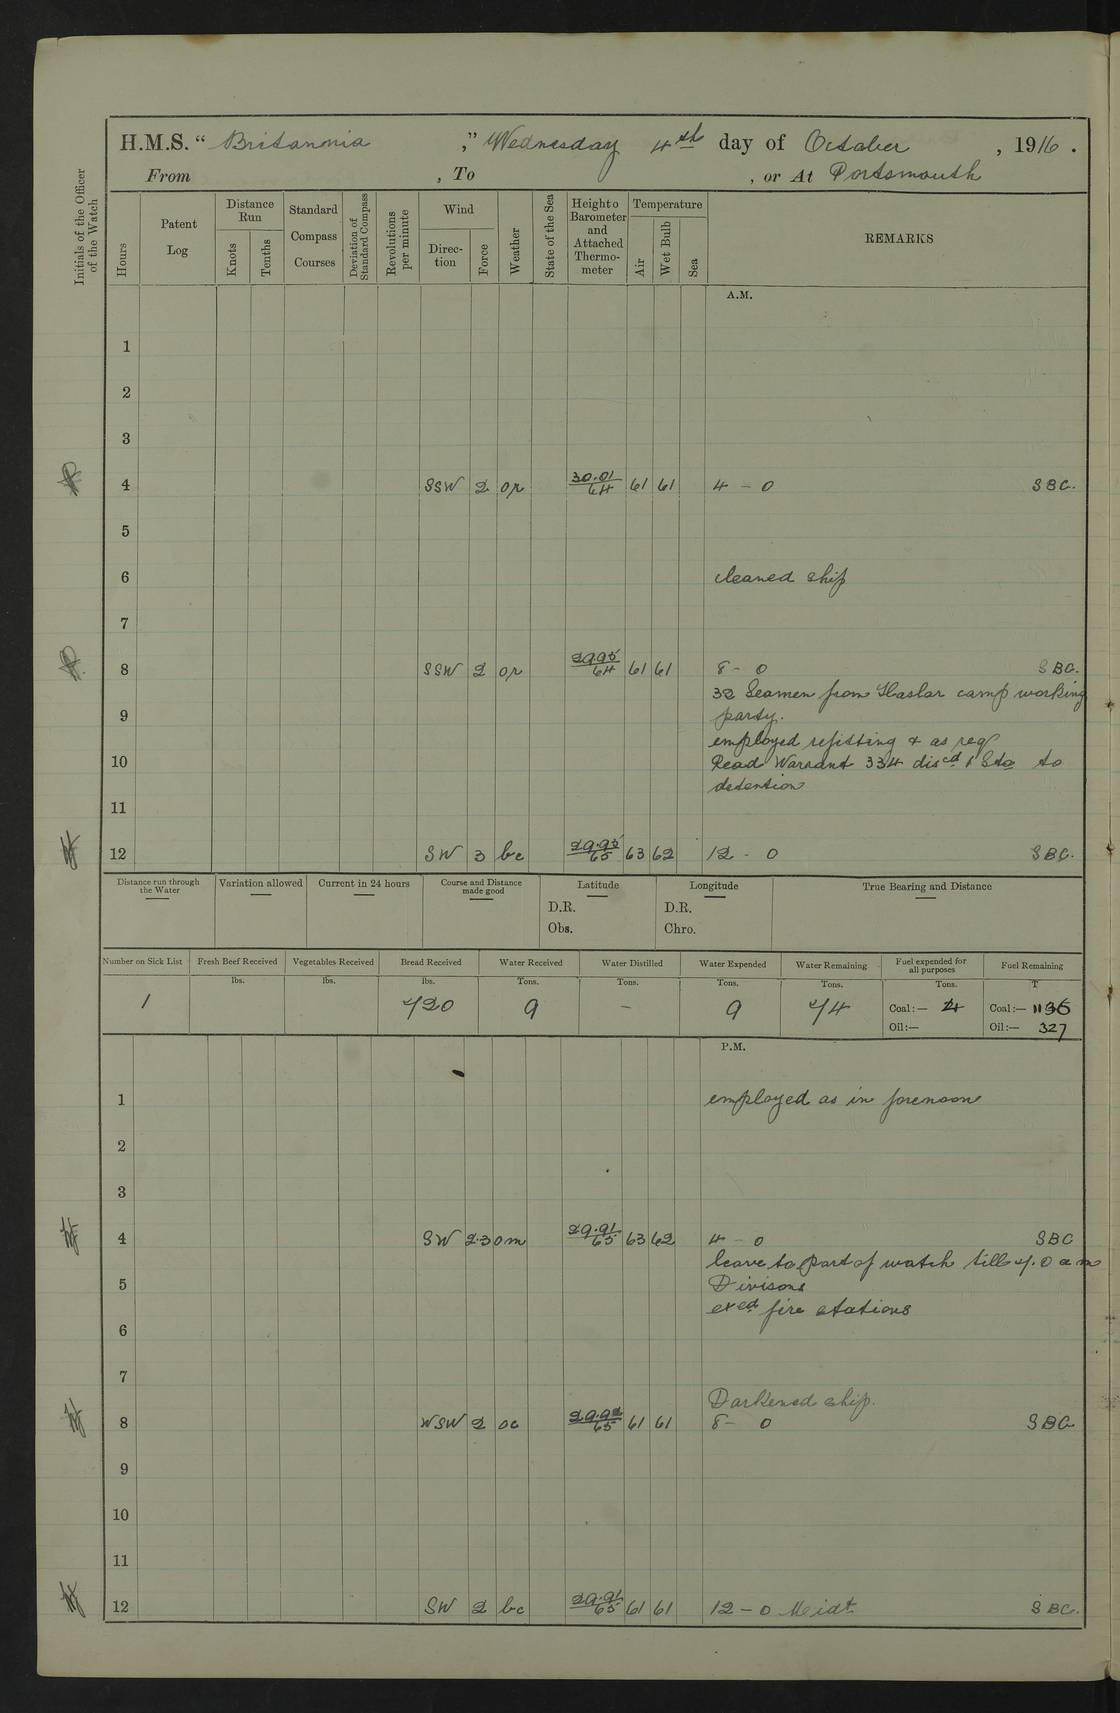 H.M.S. “ Britannia ,” Wednesday 4th day of October , 1916 .
From , To , or At Portsmouth
Initials of the Officer of the Watch
Hours
Patent Log
Distance Run
Knots
Tenths
Standard Compass Courses
Deviation of Standard Compass
Revolutions per minute
Wind
Direc-tion
Force
Weather
State of the Sea
Height o Barometer and Attached Thermo-meter
Temperature
Air
Wet Bulb
Sea
REMARKS
A.M.
1
2
3
4 SSW 2 or 30.01/64 61 61 4 - 0 SBC.
5
6 cleaned ship
7
8 SSW 2 or 29.95/64 61 61 8 - 0 SBC.
32 Seamen from Haslar camp working
9 party.
employed refitting & as req
10 Read Warrant 334 discd 1 Sto to
detention
11
12 SW 3 bc 29.95/65 63 62 12 - 0 SBC.
Distance run through the Water
Variation allowed
Current in 24 hours
Course and Distance made good
Latitude
D.R.
Obs.
Longitude
D.R.
Chro.
True Bearing and Distance
Number on Sick List Fresh Beef Received Vegetables Received Bread Received Water Received Water Distilled Water Expended Water Remaining Fuel expended for all purposes Fuel Remaining
lbs. lbs. lbs. Tons. Tons. Tons. Tons. Tons. T
1 720 9 - 9 74 Coal:— 4 Coal:— 1136
Oil:— Oil:— 327
P.M.
1 employed as in forenoon
2
3
4 SW 2.3 om 29.91/65 63 62 4 - 0 SBC
leave to part of watch till 7.0 am
5 Divisons
exed fire stations
6
7
Darkened ship.
8 WSW 2 oc 29.92/65 61 61 8 - 0 SBC
9
10
11
12 SW 2 bc 29.91/65 61 61 12 - 0 Meidt SBC.